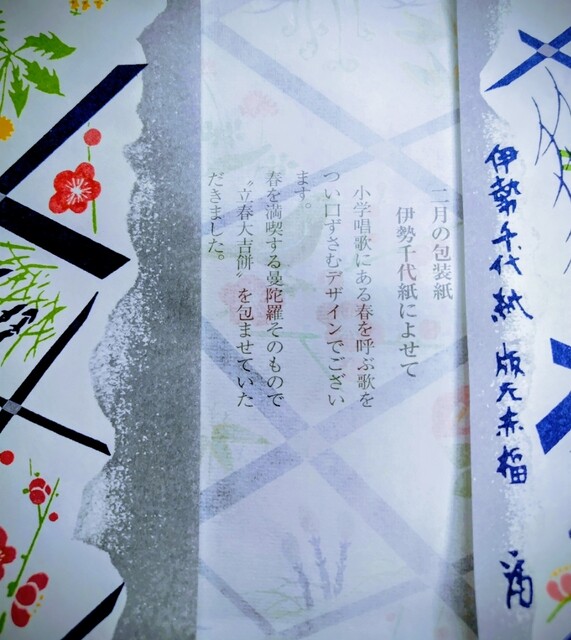 伊勢千代紙 版元赤福
二月の包装紙
伊勢千代紙によせて
小学唱歌にある春を呼ぶ歌を
つい口ずさむデザインでござい
ます。
春を満喫する曼陀羅そのもので
“立春大吉餅〟を包ませていた
だきました。